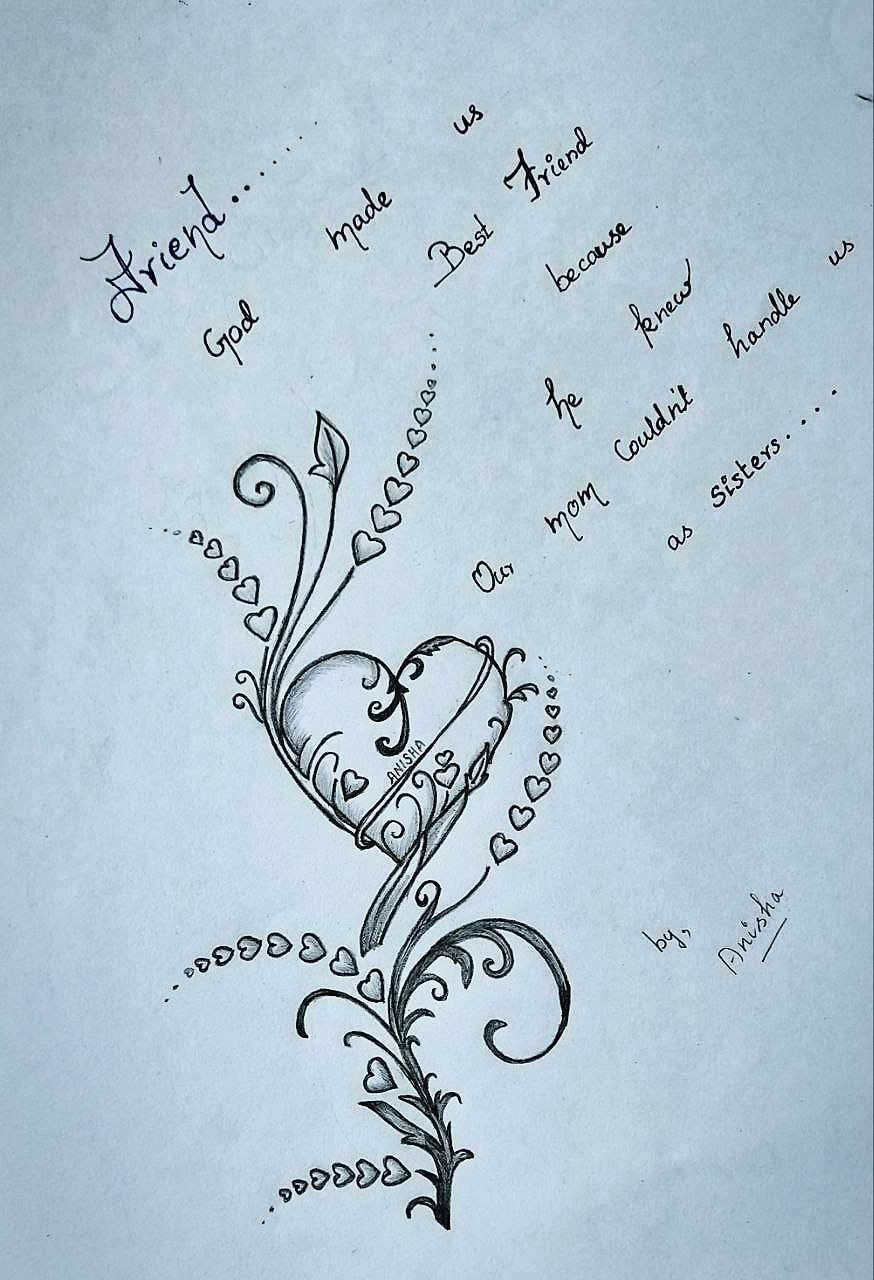 Friend........
God made us
Best Friend
because
he knew
Our mom Couldn't handle us
as sisters....
ANISHA
by,
Anisha